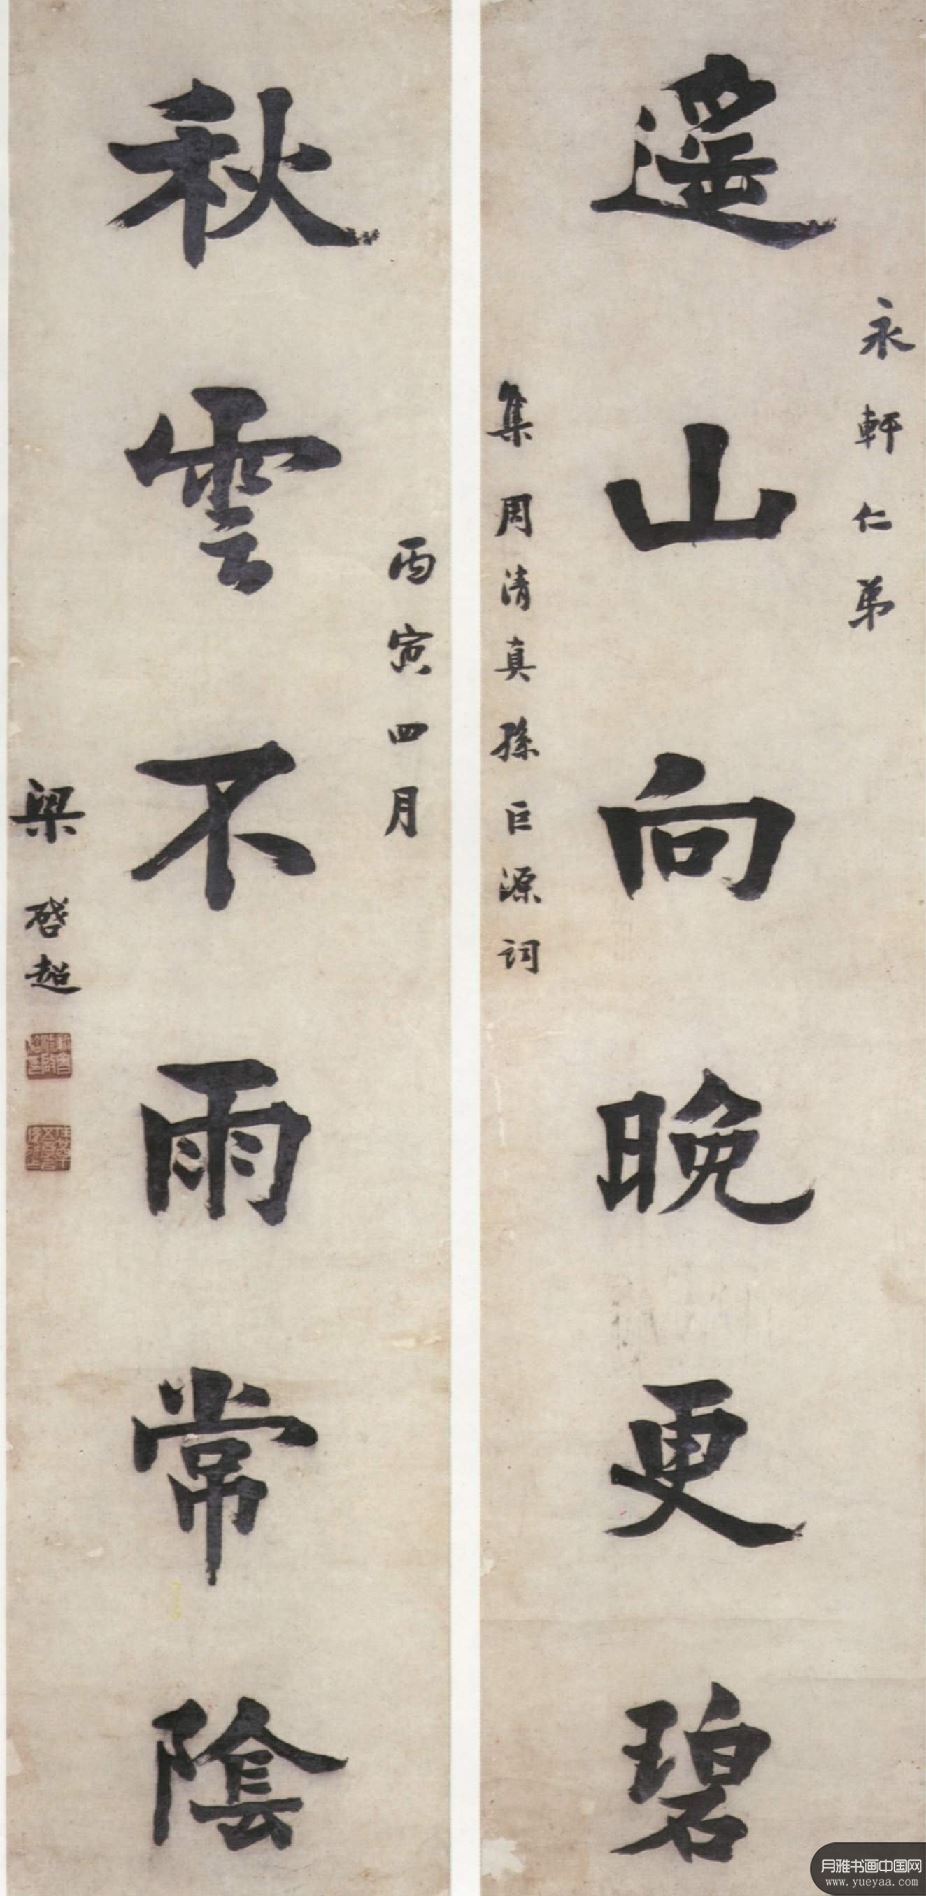 遥山向晚更碧
永軒仁弟
集周清真孫巨源詞
秋雲不雨常陰
丙寅四月
梁啓超
月雅书画中国网
www.yueyaa.com